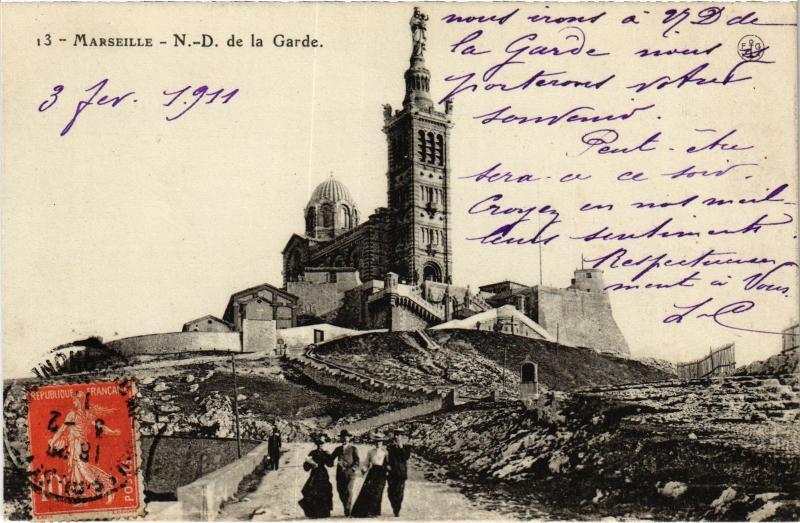 13 - MARSEILLE - N.-D. de la Garde.
3 fev. 1911
nous irons à N D de
la Garde nous
porterons votre
souvenir.
Peut-être
sera-ce ce soir.
Croyez en nos meil-
leurs sentiments
Respectueuse
ment à Vous
RÉPUBLIQUE FRANÇAISE
POSTES
10
3 - 2